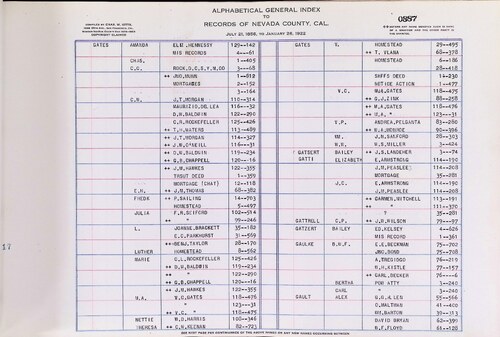 ALPHABETICAL GENERAL INDEX
TO
RECORDS OF NEVADA COUNTY, CAL.
JULY 21, 1856, TO JANUARY 28, 1922
0357
COMPILED BY CHAS. W. OTIS,
GATES AMANDA ELIE .HENNESSY 129--142 GATES S. HOMESTEAD 29--495
MIS RECORDS 4---61 ++ T. VLANA 68--378
CHAS. 1--405 HOMESTEAD 6--186
C.C. ROCK,G.C.& Y.M.CO 3---68 28--418
++ JNO.MUNN 1--612 SAFFS DEED 14--230
MORTGAGES 2--152 NOTICE ACTION 1--477
3--164 V.C. M.A.GATES 118--475
C.H. J.T.MORGAN 116--314 ++ G.J.ZINK 88--258
MAURIZIO,DE LEA 116---32 ++ M.A.GATES 118--476
D.H.BALDWIN 122--290 ++ M.A. " 123---31
C.R.ROCKEFELLER 125--426 E.P. ANDREA,PELGANTA 83--280
++ T.H.WATERS 113--489 ++ W.A.MONROE 90--396
++ J.T.MORGAN 114--327 WM. J.H.SARFORD 28--303
++ J.M.O'NEILL 116---31 W.R. W.S.MILLER 3--424
++ D.H.BALDWIN 119--234 GATSERT BAILEY ++ J.S.LANDEHER 3---74
++ G.B.CHAPPELL 120---16 GATTI ELIZABETH E.ARMSTRONG 114--190
++ J.M.HAWKES 122--355 J.H.PEASLEE 114--208
TRUST DEED 1--359 MORTGAGE 35--281
MORTGAGE (CHAT) 12--118 J.C. E.ARMSTRONG 114--190
E.H. ++ J.M.THOMAS 68--382 J.H.PEASLEE 114--208
FREDK ++ P.SAILING 14--703 ++ CARMEN,MITCHELL 113--191
HOMESTEAD 5--497 ++ 111--376
JULIA F.R.SEIFORD 102--514 " 35--281
++ " 99--246 GATTRELL C.P. ++ J.R.WILSON 79---97
L. JOANNE,BRACKETT 35--182 GATZERT BAILEY ED.KELSEY 4--626
E.C.PARKHURST 31--569 MIS RECORD 1--361
++BENJ.TAYLOR 28--170 GAULKE B.H.F. E.G.BECKMAN 75--702
LUTHER HOMESTEAD 8--562 JNO.BOND 75--708
MARIE C.L.ROCKEFELLER 125--426 A.TREGIDGO 76--219
++ D.H.BALDWIN 119--234 H.H.KISTLE 77--157
122--290 ++ CARL,BECKER 76----6
++ G.B.CHAPPELL 120---16 BERTHA POR ATTY 3--240
++ J.M.HAWKES 122--355 CARL " 3--240
M.A. V.C.GATES 118--476 GAULT ALEX G.R.ALLEN 55--566
++ " 123---31 O.MALTMAN 41--400
++ V.C. " 118--475 WM.BARTON 39--313
NETTIE W.D.HARRIS 108--346 DAVID BRYAN 62--390
THERESA ++ C.N.KEENAN 82--723 B.F.FLOYD 61--128